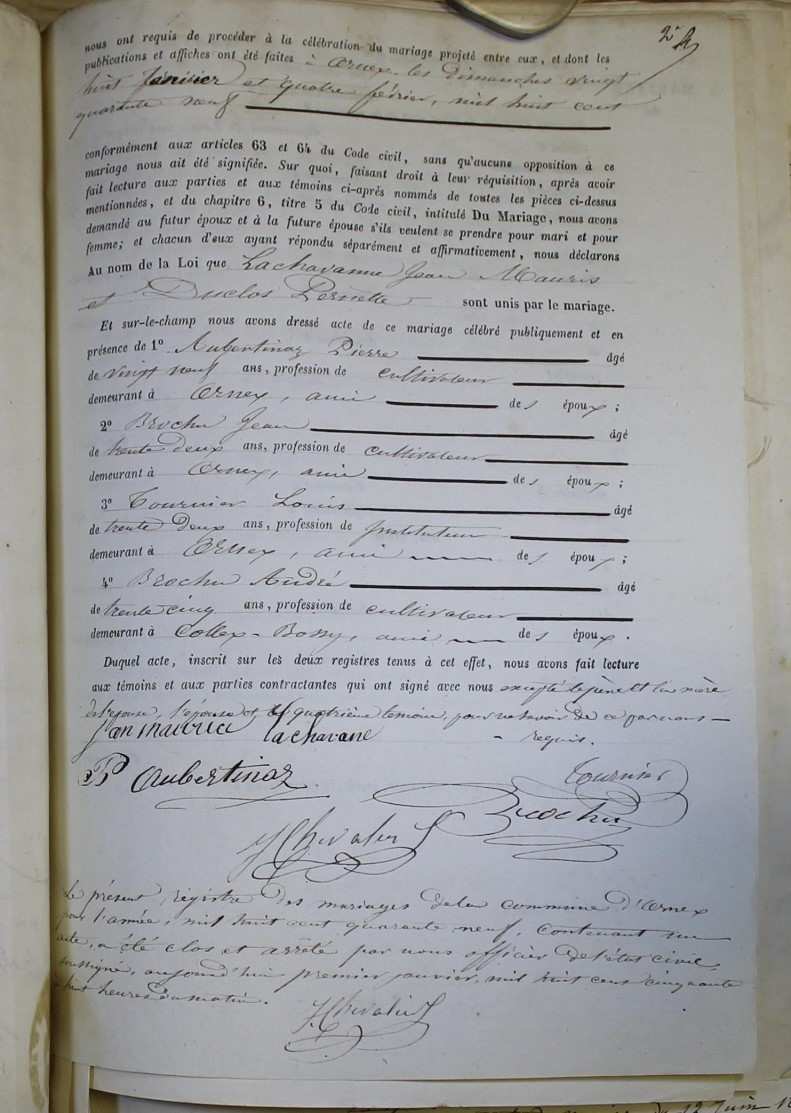 2e
nous ont requis de procéder à la célébration du mariage projeté entre eux, et dont les
publications et affiches ont été faites à Ornex les dimanches vingt
huit janvier et quatre février, mil huit cent
quarante neuf
conformément aux articles 63 et 64 du Code civil, sans qu'aucune opposition à ce
mariage nous ait été signifiée. Sur quoi, faisant droit à leur réquisition, après avoir
fait lecture aux parties et aux témoins ci-après nommés de toutes les pièces ci-dessus
mentionnées, et du chapitre 6, titre 5 du Code civil, intitulé Du Mariage, nous avons
demandé au futur époux et à la future épouse s'ils veulent se prendre pour mari et pour
femme; et chacun d'eux ayant répondu séparément et affirmativement, nous déclarons
Au nom de la Loi que Lachavanne Jean Mauris
et Duclos Pernette sont unis par le mariage.
Et sur-le-champ nous avons dressé acte de ce mariage célébré publiquement et en
présence de 1o Aubertinaz Pierre âgé
de vingt neuf ans, profession de cultivateur
demeurant à Ornex, ami des époux;
2o Brochu Jean âgé
de trente deux ans, profession de cultivateur
demeurant à Ornex, ami des époux;
3o Tournier Louis âgé
de trente deux ans, profession de Instituteur
demeurant à Ornex, ami des époux;
4o Brochu André âgé
de trente cinq ans, profession de cultivateur
demeurant à Collex-Bossy, ami des époux.
Duquel acte, inscrit sur les deux registres tenus à cet effet, nous avons fait lecture
aux témoins et aux parties contractantes qui ont signé avec nous excepté le père et la mère
de l'épouse, l'épouse et le quatrième témoin, pour ne savoir de ce par nous
requis.
Jean maurice lachavane
P Aubertinaz Tournier
Brochu
J Chevalier
Le présent registre des mariages de la commune d'Ornex
pour l'année mil huit cent quarante neuf, contenant un
acte, a été clos et arrêté par nous officier de l'état civil
soussigné, aujourd'hui premier janvier, mil huit cent cinquante
à huit heures du matin.
J Chevalier
12 Juin 18